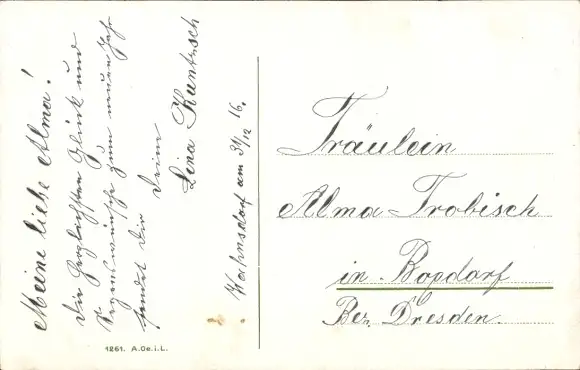 Meine liebe Alma!
Die herzlichsten Glück und
Segenswünsche zum neuen Jahr
sendet dir
Deine
Lina Kuntzsch
am 31/12 16.
Fräulein
Alma Trobisch
in
Bez. Dresden.
1261. A.Oe.i.L.